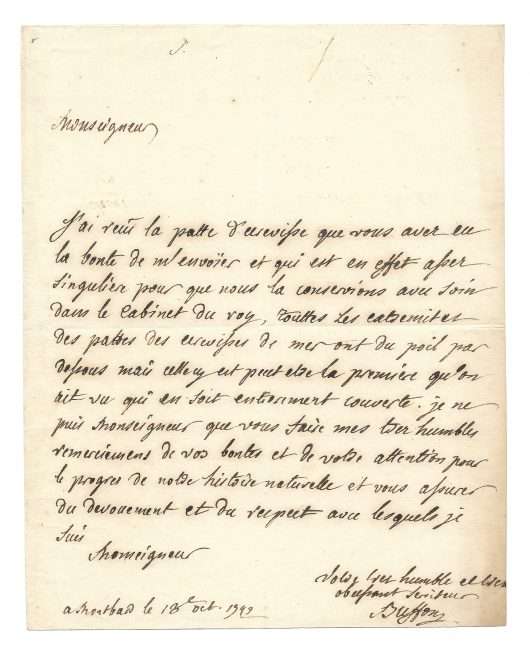 Monseigneur
J'ai reçu la patte d'ecrevisse que vous avez eu
la bonté de m'envoïer et qui est en effet assez
singuliere pour que nous la conservions avec soin
dans le Cabinet du roy, touttes les extremités
des pattes des ecrevisses de mer ont du poil par
dessous mais celle cy est peut etre la premiere qu'on
ait vu qui en soit entierement couverte. je ne
puis Monseigneur que vous faire mes tres humbles
remerciemens de vos bontes et de votre attention pour
le progres de notre histoire naturelle et vous assurer
du devouement et du respect avec lesquels je
suis
Monseigneur
Votre tres humble et tres
obeissant serviteur
Buffon
a Montbard le 18e oct.